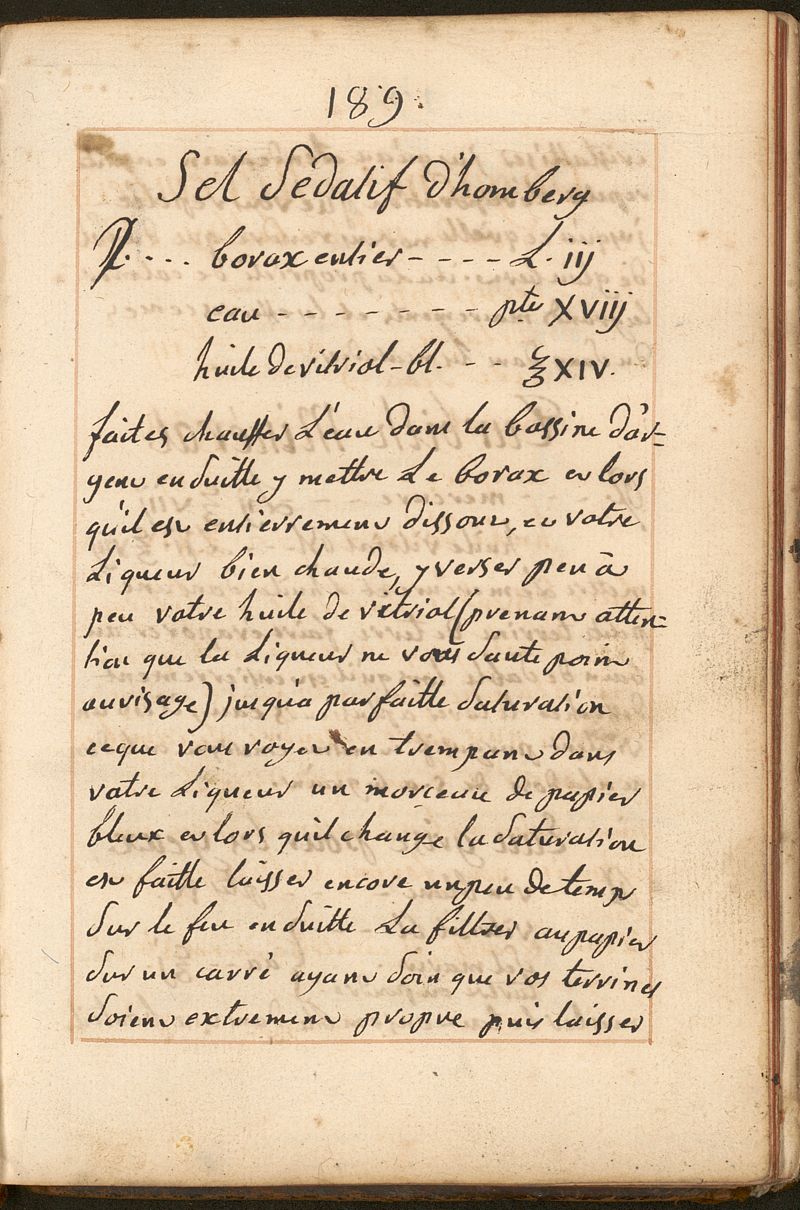 189.
Sel Sedatif d'homberg
℞. . . . borax entier - - - - L. iij
eau - - - - - - - pte XViij
huile de vitriol - bl. - - ℥ XIV.
faites chauffer L'eau dans la bassine d'ar=
gent ensuitte y mettre Le borax et lors
qu'il est entierrement dissout, et votre
Liqueur bien chaude, y verser peu à
peu votre huile de vitriol (prenant atten=
tion que la Liqueur ne vous saute point
au visage) jusqu'a parfaitte saturation
ce que vous voyez en trempant dans
votre Liqueur un morceau de papier
bleux et lors qu'il change la saturation
est faitte laisser encore un peu de temp
sur le feu ensuitte La filtrer au papier
sur un carré ayant soin que vos terrines
soient extrement propre puis laisser